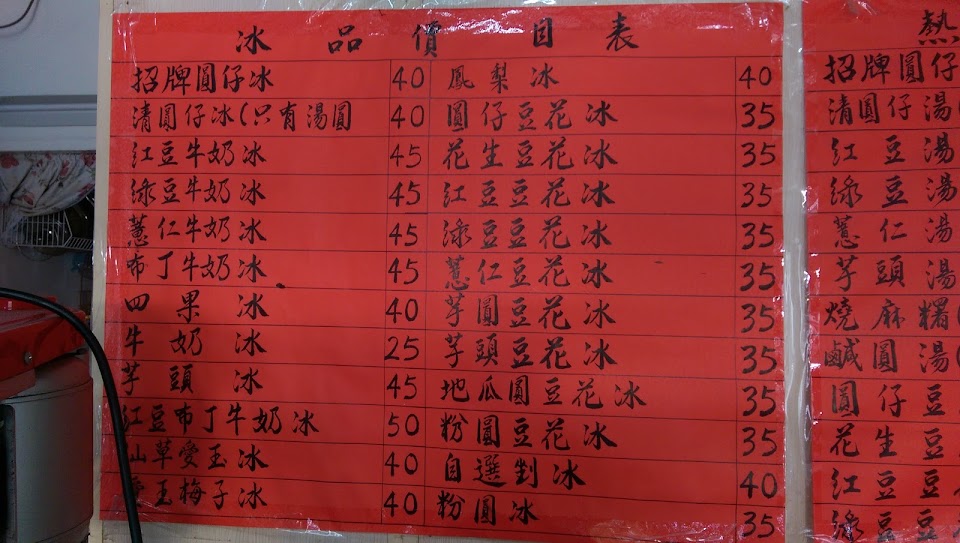 冰品價目表
招牌圓仔冰 40 鳳梨冰 40
清圓仔冰(只有湯圓 40 圓仔豆花冰 35
紅豆牛奶冰 45 花生豆花冰 35
綠豆牛奶冰 45 紅豆豆花冰 35
薏仁牛奶冰 45 綠豆豆花冰 35
布丁牛奶冰 45 薏仁豆花冰 35
四果冰 40 芋圓豆花冰 35
牛奶冰 25 芋頭豆花冰 35
芋頭冰 45 地瓜圓豆花冰 35
紅豆布丁牛奶冰 50 粉圓豆花冰 35
仙草愛玉冰 40 自選剉冰 40
愛玉梅子冰 40 粉圓冰 35
熱
招牌圓仔
清圓仔湯(
紅豆湯
綠豆湯
薏仁湯
芋頭湯
燒麻糬(
鹹圓湯(
圓仔豆
花生豆
紅豆豆
綠豆豆